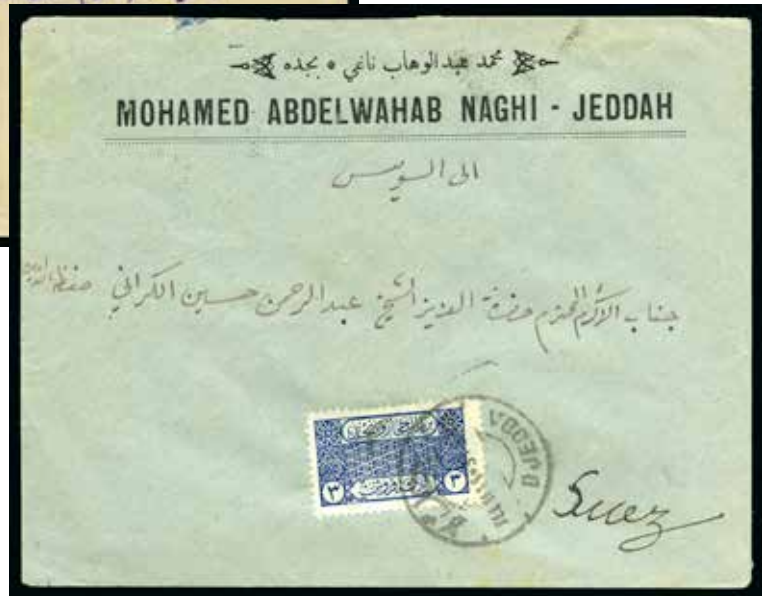 محمد عبدالوهاب ناغي ٥ بجده
MOHAMED ABDELWAHAB NAGHI - JEDDAH
الى السويس
جناب الاكرم المحترم حضرة العزيز الشيخ عبدالرحمن حسين الكراني حفظه الله
٣ ٣
DJEDDA
Suez